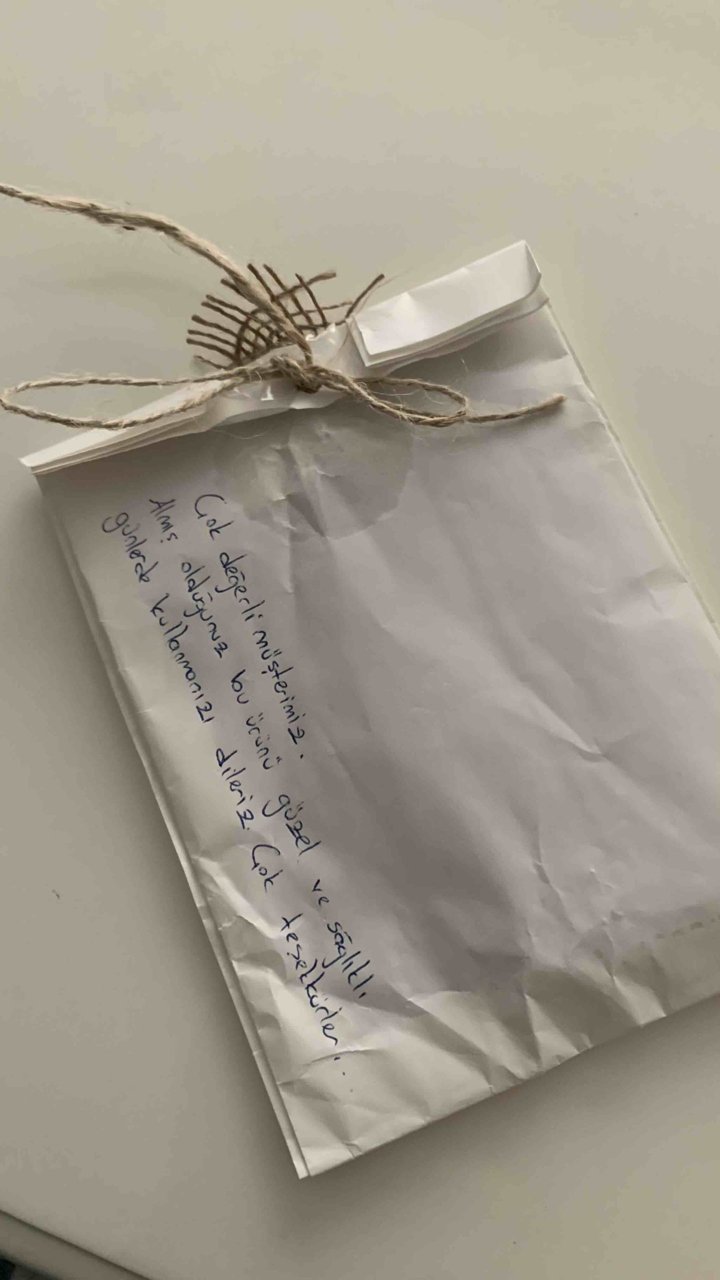 Çok değerli müşterimiz.
Almış olduğunuz bu ürünü güzel ve sağlıklı
günlerde kullanmanızı dileriz. Çok teşekkürler...